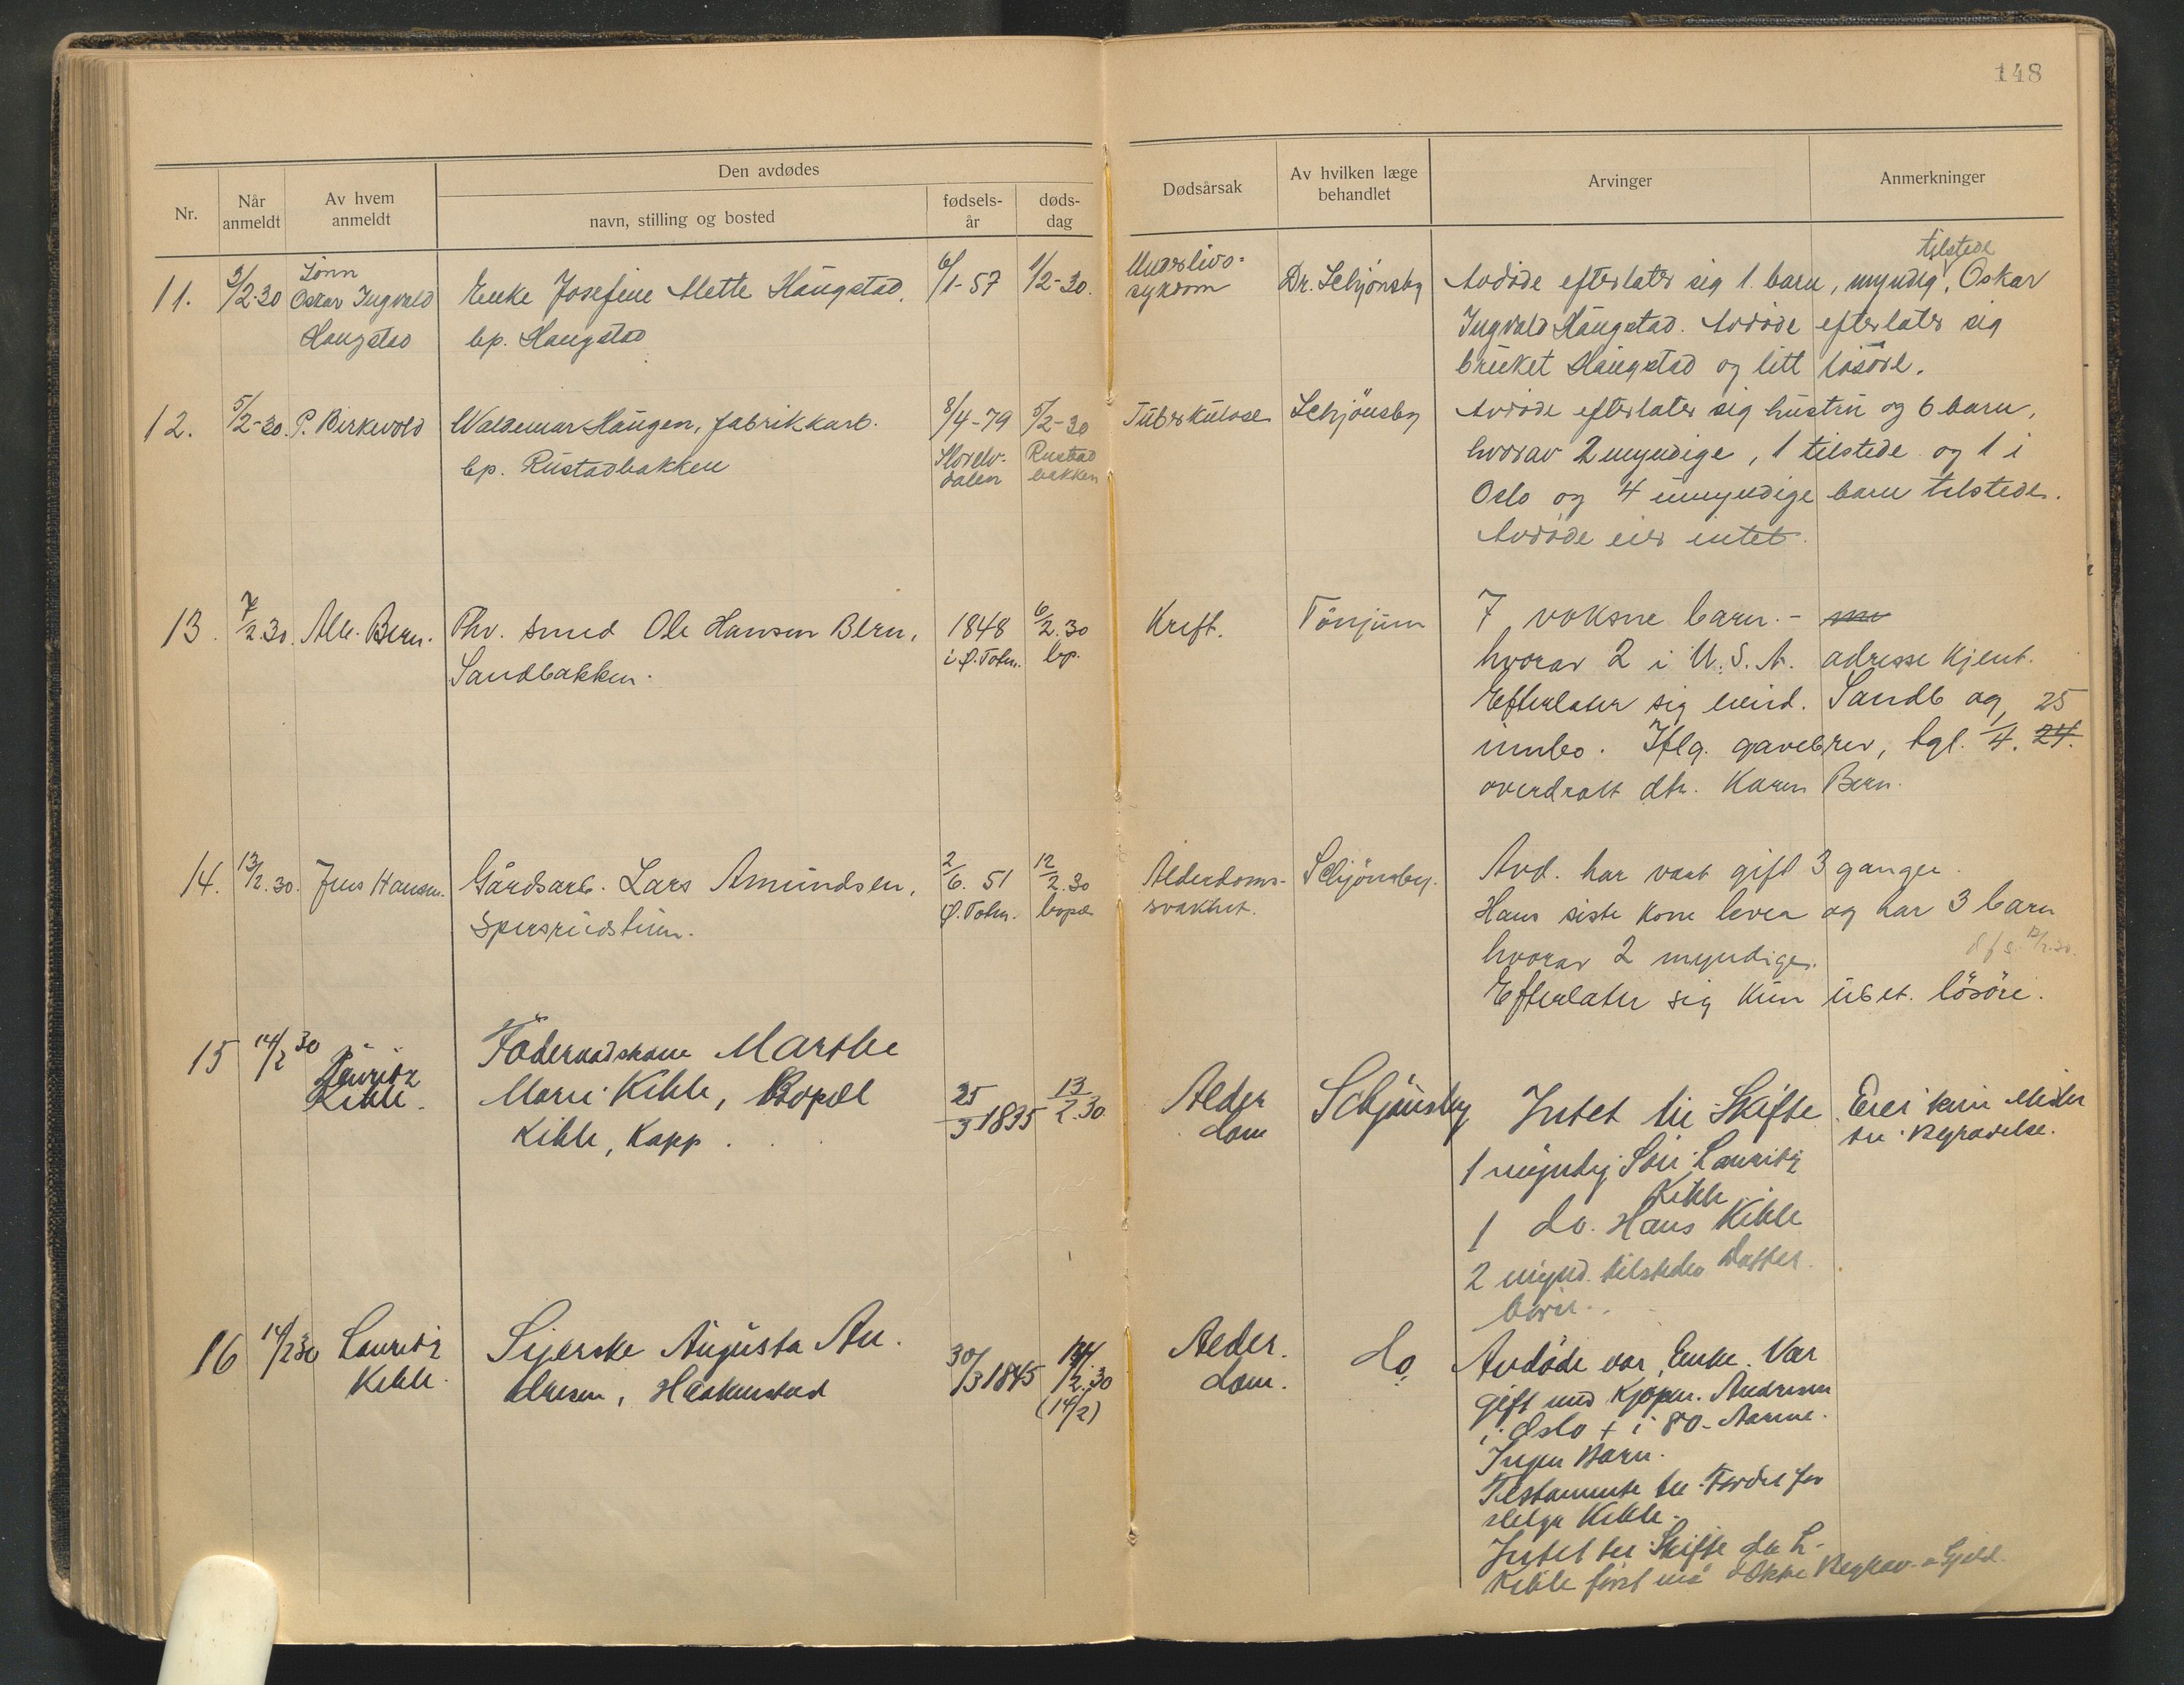 148
Den avdødes
Nr.
Når anmeldt
Av hvem anmeldt
navn, stilling og bosted
fødsels-år
døds-dag
Dødsårsak
Av hvilken læge behandlet
Arvinger
Anmerkninger
11. 3/2-30 Sönn Oskar Ingvald Haugstad
Enke Josefine Mette Haugstad,
bp. Haugstad
6/1-57 1/2-30.
Underlivs-
sykdom
Dr. Schjönsby
tilstede
Avdöde efterlater sig 1 barn, myndig, Oskar
Ingvald Haugstad. Avdöde efterlater sig
bruket Haugstad og litt lösöre.
12. 5/2-30. P. Birkvold
Waldemar Haugen, fabrikkarb.
bp. Rustadbakken
8/4-79 5/2-30
Rustad
dalen bakken
Tuberkulose Schjönsby
Avdöde efterlater sig hustru og 6 barn,
hvorav 2 myndige, 1 tilstede og 1 i
Oslo og 4 umyndige barn tilstede.
Avdöde eier intet.
13. 7/2.30. Bern.
Phv. smed Ole Hansen Bern,
Sandbakken.
1848 6/2.30
i Ø. Toten. bp.
Kreft. Tönjum
7 voksne barn. -
hvorav 2 i U.S.A. adresse kjent.
Efterlater sig eiend. Sandb og 25
innbo. Iflg. gavebrev, tgl. 7/4. 24.
overdratt dtr. Karen Bern.
14. 13/2.30. Jens Hansen.
Gårdsarb. Lars Amundsen,
Spersrudstuen.
2/6. 51 12/2.30
Ø. Toten. bopæl
Alderdoms-
svakhet.
Schjönsby.
Avd. har vært gift 3 ganger.
Hans siste kone lever og har 3 barn
hvorav 2 myndige.
12/2.30.
Efterlater sig kun ubet. lösöre.
15 14/2 30
Lauritz
Kihle.
Föderaadskone Marthe
Marie Kihle, Bopæl
Kihle, Kapp.
25/3 1835 13/2.30
Alder
dom
Schjönsby
Intet til Skifte Eier kun Midler
til Begravelse.
1 myndig Sön Lauritz
Kihle
1 do. Hans Kihle
2 mynd. tilstedev Datter
börn.
16 14/2 30 Lauritz
Kihle.
Syerske Augusta An
dresen, Haakenstad
30/3 1845 14/2.30
(14/2)
Alder.
dom.
do
Avdöde var Enke. Var
gift med Kjöpm. Andresen
i Oslo + i 80-Aarene.
Ingen Barn.
Testamente til Fordel for
Helga Kihle.
Intet til Skifte da L.
Kihle först må dække Begrav. Gjeld.